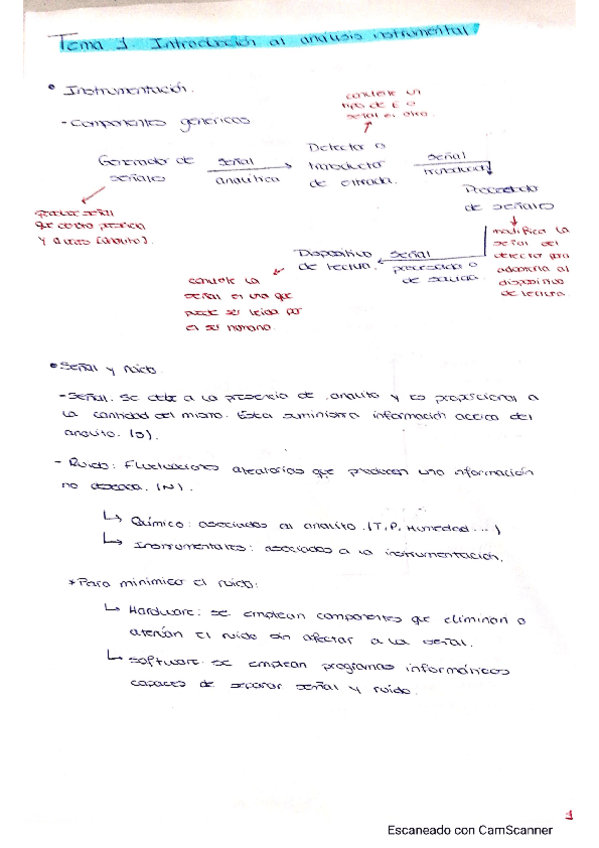 Tema 1. Introducción al análisis instrumental
• Instrumentación.
- Componentes genéricos
convierte un
tipo de E o
señal en otra.
Generador de
señales
señal
analítica
Detector o
transductor
de entrada.
señal
transducida
Procesado
de señales
produce señal
que contro presencia
y a otros (analito).
modifica la
señal del
detector para
adaptarla al
dispositivo
de lectura.
Dispositivo
de lectura.
señal
procesada o
de salida.
convierte la
señal en una que
puede ser leída por
el ser humano.
• Señal y ruido.
- Señal. Se debe a la presencia de analito y es proporcional a
la cantidad del mismo. Esta suministra información acerca del
analito. (S).
- Ruido: Fluctuaciones aleatorias que producen una información
no deseada. (N).
↳ Químico: asociados al analito. (T, P, Humedad ...)
↳ Instrumentales: asociados a la instrumentación.
* Para minimizar el ruido:
↳ Hardware: se emplean componentes que eliminan o
atenúan el ruido sin afectar a la señal.
↳ Software. se emplean programas informáticos
capaces de separar señal y ruido.
1
Escaneado con CamScanner